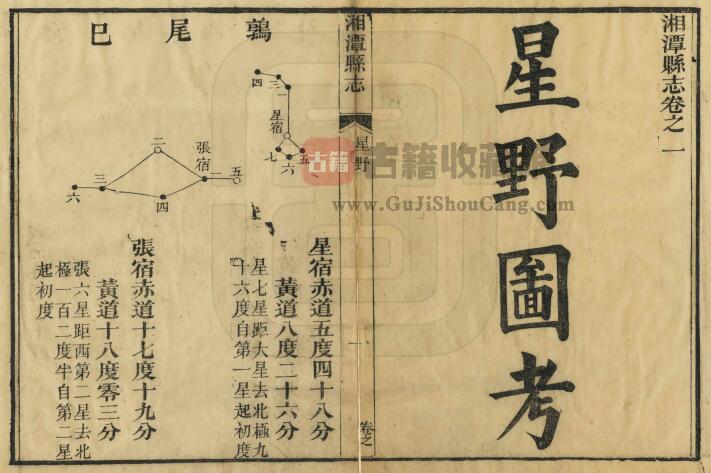 湘潭縣志卷之一
星野圖考
湘潭縣志
星野
一
卷之
鶉尾巳
四
三
一
星宿
七
六
五
二
張宿
一
五
三
四
六
星宿赤道五度四十八分
黃道八度二十六分
星七星距大星去北極九
十六度自第一星起初度
張宿赤道十七度十九分
黃道十八度零三分
張六星距西第二星去北
極一百二度半自第二星
起初度
古籍
古籍收藏
www.GuJiShouCang.com